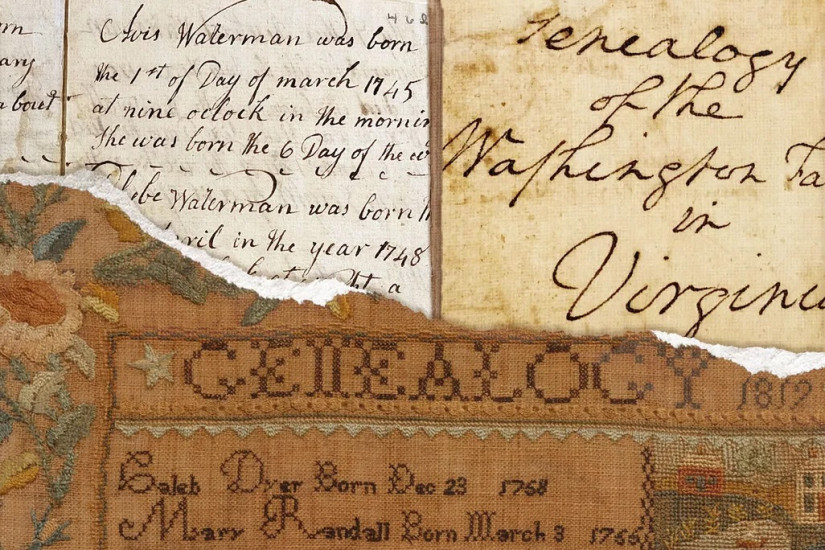 ary
about
468
Avis Waterman was born
the 1st of Day of march 1745
at nine oclock in the mornin
She was born the 6 Day of the we
Phebe Waterman was born
pril in the year 1748
a
Genealogy
of the
Washington Fa
in
Virginia
GENEALOGY 1819
Caleb Dyer Born Dec 23 1768
Mary Randall Born March 3 1766